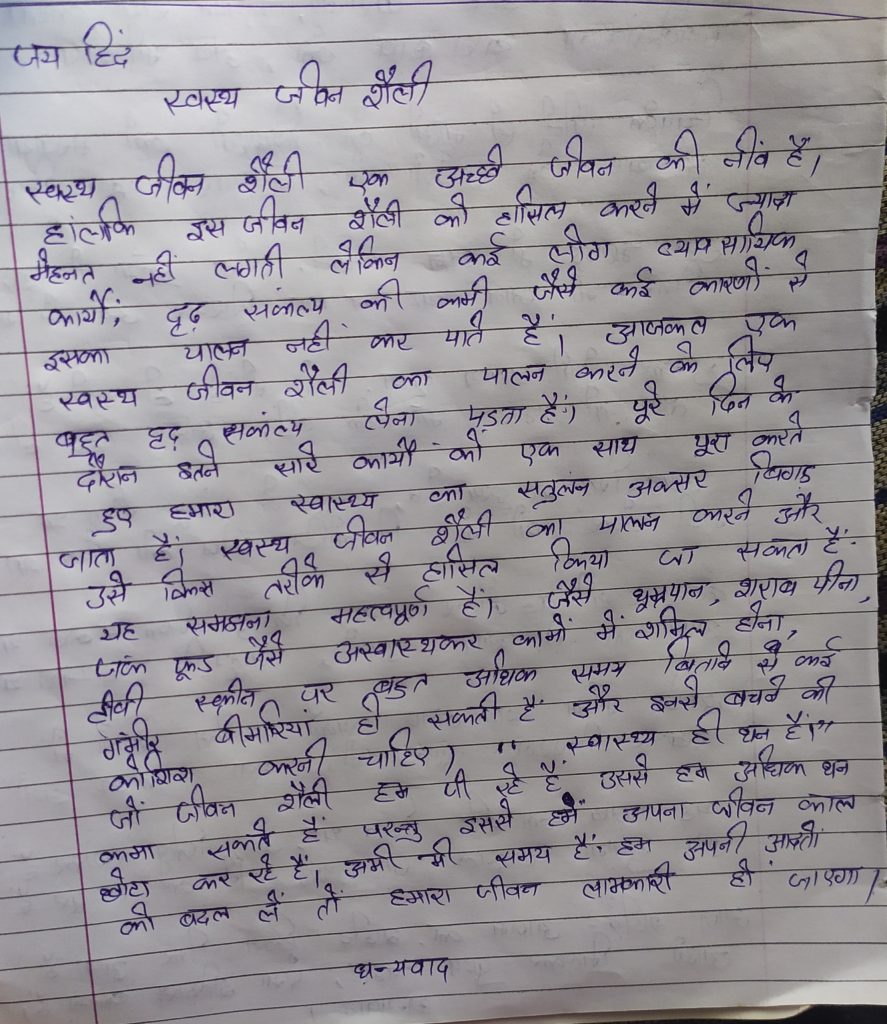 जय हिंद
स्वस्थ जीवन शैली
स्वस्थ जीवन शैली एक अच्छे जीवन की नींव है।
हांलकि इस जीवन शैली को हासिल करने में ज्यादा
मेहनत नहीं लगती लेकिन कई लोग व्यावसायिक
कार्यों, दृढ़ संकल्प की कमी जैसे कई कारणों से
इसका पालन नहीं कर पाते हैं। आजकल एक
स्वस्थ जीवन शैली का पालन करने के लिए
बहुत दृढ़ संकल्प लेना पड़ता है। पूरे दिन के
दौरान इतने सारे कार्यों को एक साथ पूरा करते
हुए हमारा स्वास्थ्य का सतुलन अक्सर बिगड़
जाता है। स्वस्थ जीवन शैली का पालन करने और
उसे किस तरीके से हासिल किया जा सकता है
यह समझना महत्वपूर्ण है। जैसे धूम्रपान, शराब पीना,
जंक फूड जैसे अस्वास्थकर कामों में शामिल होना,
टीवी स्क्रीन पर बहुत अधिक समय बिताने से कई
गंभीर बीमरियां हो सकती हैं और इनसे बचने की
कोशिश करनी चाहिए। " स्वास्थ्य ही धन है।"
जों जीवन शैली हम जी रहे हैं उससे हम अधिक धन
कमा सकते हैं परन्तु इससे हमें अपना जीवन काल
छोटा कर रहे हैं। अभी भी समय है हम अपनी आदतों
को बदल लें तों हमारा जीवन लाभकारी हो जाएगा।
धन्यवाद